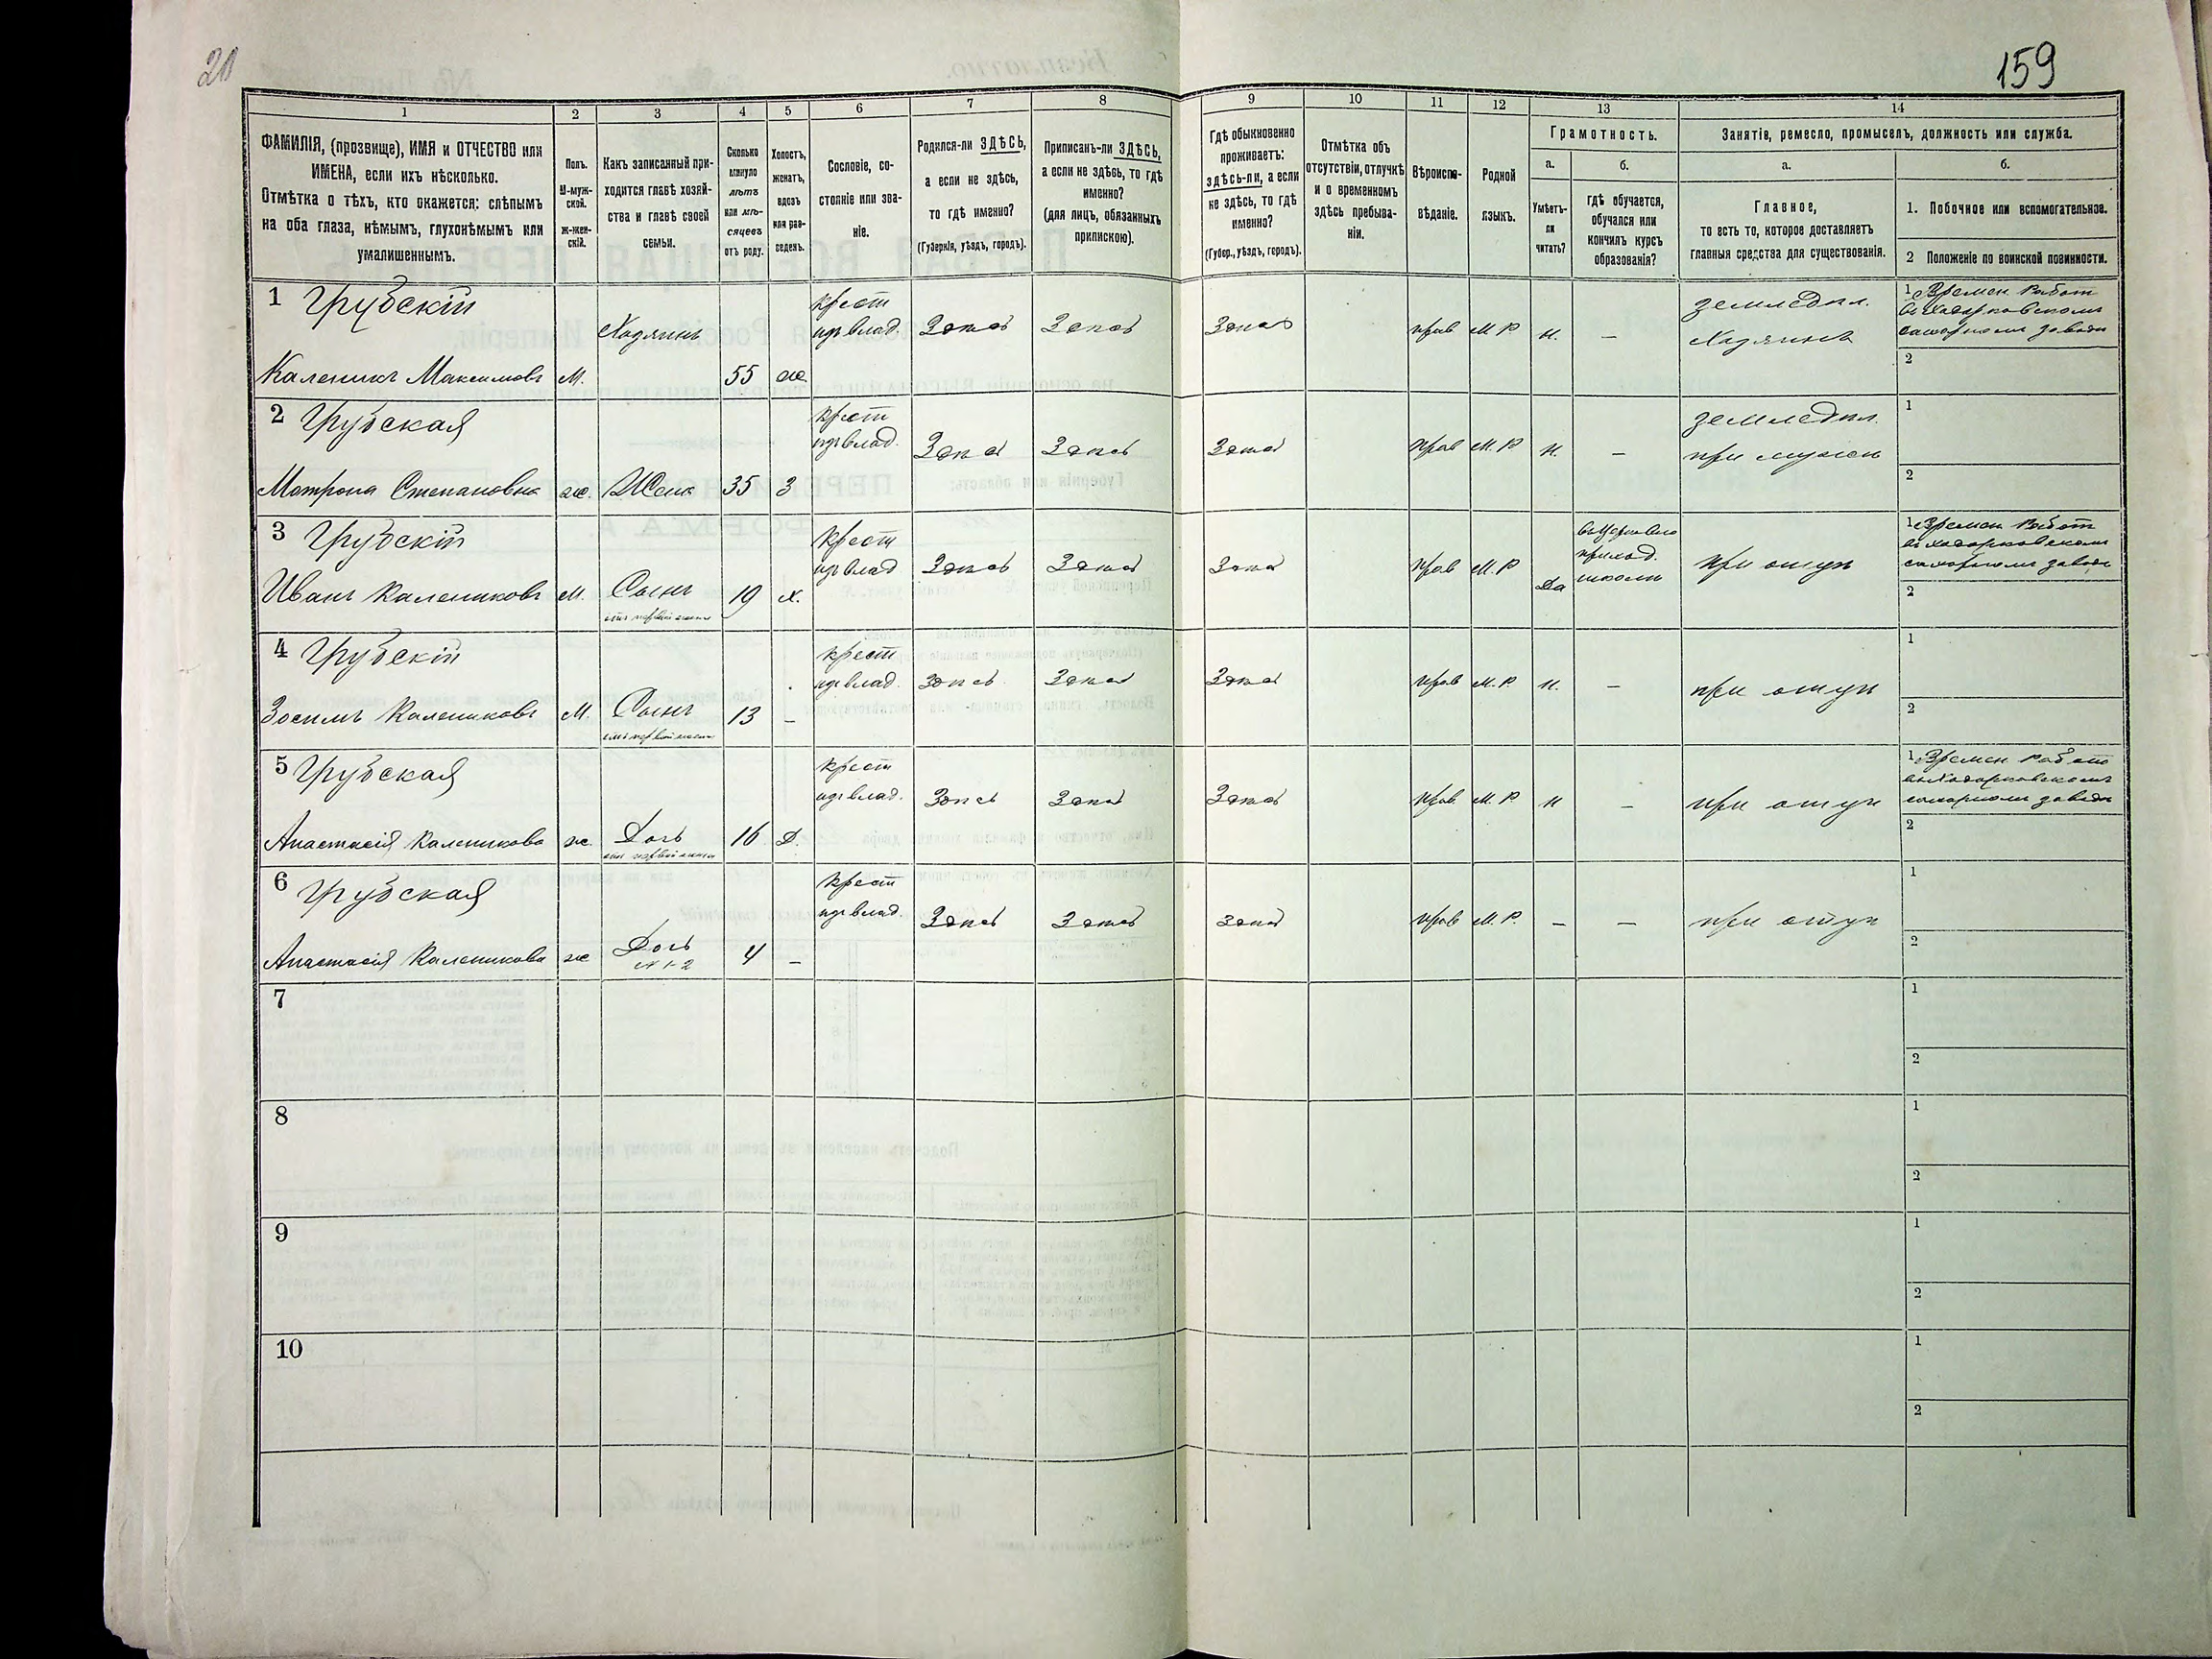 20
159
1
2
3
4
5
6
7
8
9
10
11
12
13
14
ФАМИЛІЯ, (прозвище), ИМЯ и ОТЧЕСТВО или
ИМЕНА, если ихъ нѣсколько.
Отмѣтка о тѣхъ, кто окажется: слѣпымъ
на оба глаза, нѣмымъ, глухонѣмымъ или
умалишеннымъ.
Полъ.
М-муж-
ской.
Ж-жен-
скій.
Какъ записанный при-
ходится главѣ хозяй-
ства и главѣ своей
семьи.
Сколько
минуло
лѣтъ
или мѣ-
сяцевъ
отъ роду.
Холостъ,
женатъ,
вдовъ
или раз-
веденъ.
Сословіе, со-
стояніе или зва-
ніе.
Родился-ли ЗДѢСЬ,
а если не здѣсь,
то гдѣ именно?
(Губернія, уѣздъ, городъ).
Приписанъ-ли ЗДѢСЬ,
а если не здѣсь, то гдѣ
именно?
(для лицъ, обязанныхъ
припискою).
Гдѣ обыкновенно
проживаетъ:
здѣсь-ли, а если
не здѣсь, то гдѣ
именно?
(Губер., уѣздъ, городъ).
Отмѣтка объ
отсутствіи, отлучкѣ
и о временномъ
здѣсь пребыва-
ніи.
Вѣроиспо-
вѣданіе.
Родной
языкъ.
Грамотность.
а.
б.
Умѣетъ-
ли
читать?
гдѣ обучается,
обучался или
кончилъ курсъ
образованія?
Занятіе, ремесло, промыселъ, должность или служба.
а.
б.
Главное,
то есть то, которое доставляетъ
главныя средства для существованія.
1. Побочное или вспомогательное.
2 Положеніе по воинской повинности.
1 Грубскій
Каленикъ Максимовъ
М.
Хозяинъ
55
ж.
крест
изъ влад.
Здесь
Здесь
Здесь
прав
М Р
н.
–
земледел.
Хозяинъ
1 Времен Работ
въ Ходорковскомъ
сахарномъ заводе
2
2 Грубская
Матрона Степановна
ж.
Жена
35
З
крест
изъ влад.
Здесь
Здесь
Здесь
прав
М. Р
н.
–
земледел.
при муже
1
2
3 Грубскій
Иванъ Калениковъ
М.
Сынъ
отъ первой жены
19
х.
крест
изъ влад
Здесь
Здесь
Здесь
прав
М. Р
Да
въ Церковно
приход.
школе
при отце
1 Времен Работ
въ Ходорковскомъ
сахарномъ заводе
2
4 Грубскій
Зосимъ Калениковъ
М.
Сынъ
отъ первой жены
13
–
крест
изъ влад.
Здесь
Здесь
Здесь
прав
М. Р.
н.
–
при отце
1
2
5 Грубская
Анастасія Каленикова
ж.
Дочь
отъ первой жены
16
Д.
крест
изъ влад.
Здесь
Здесь
Здесь
прав.
М. Р
н
–
при отце
1 Времен Работ
въ Ходорковскомъ
сахарномъ заводе
2
6 Грубская
Анастасія Каленикова
ж
Дочь
№ 1-2
4
–
крест
изъ влад.
Здесь
Здесь
Здесь
прав
М. Р.
–
–
при отце
1
2
7
1
2
8
1
2
9
1
2
10
1
2